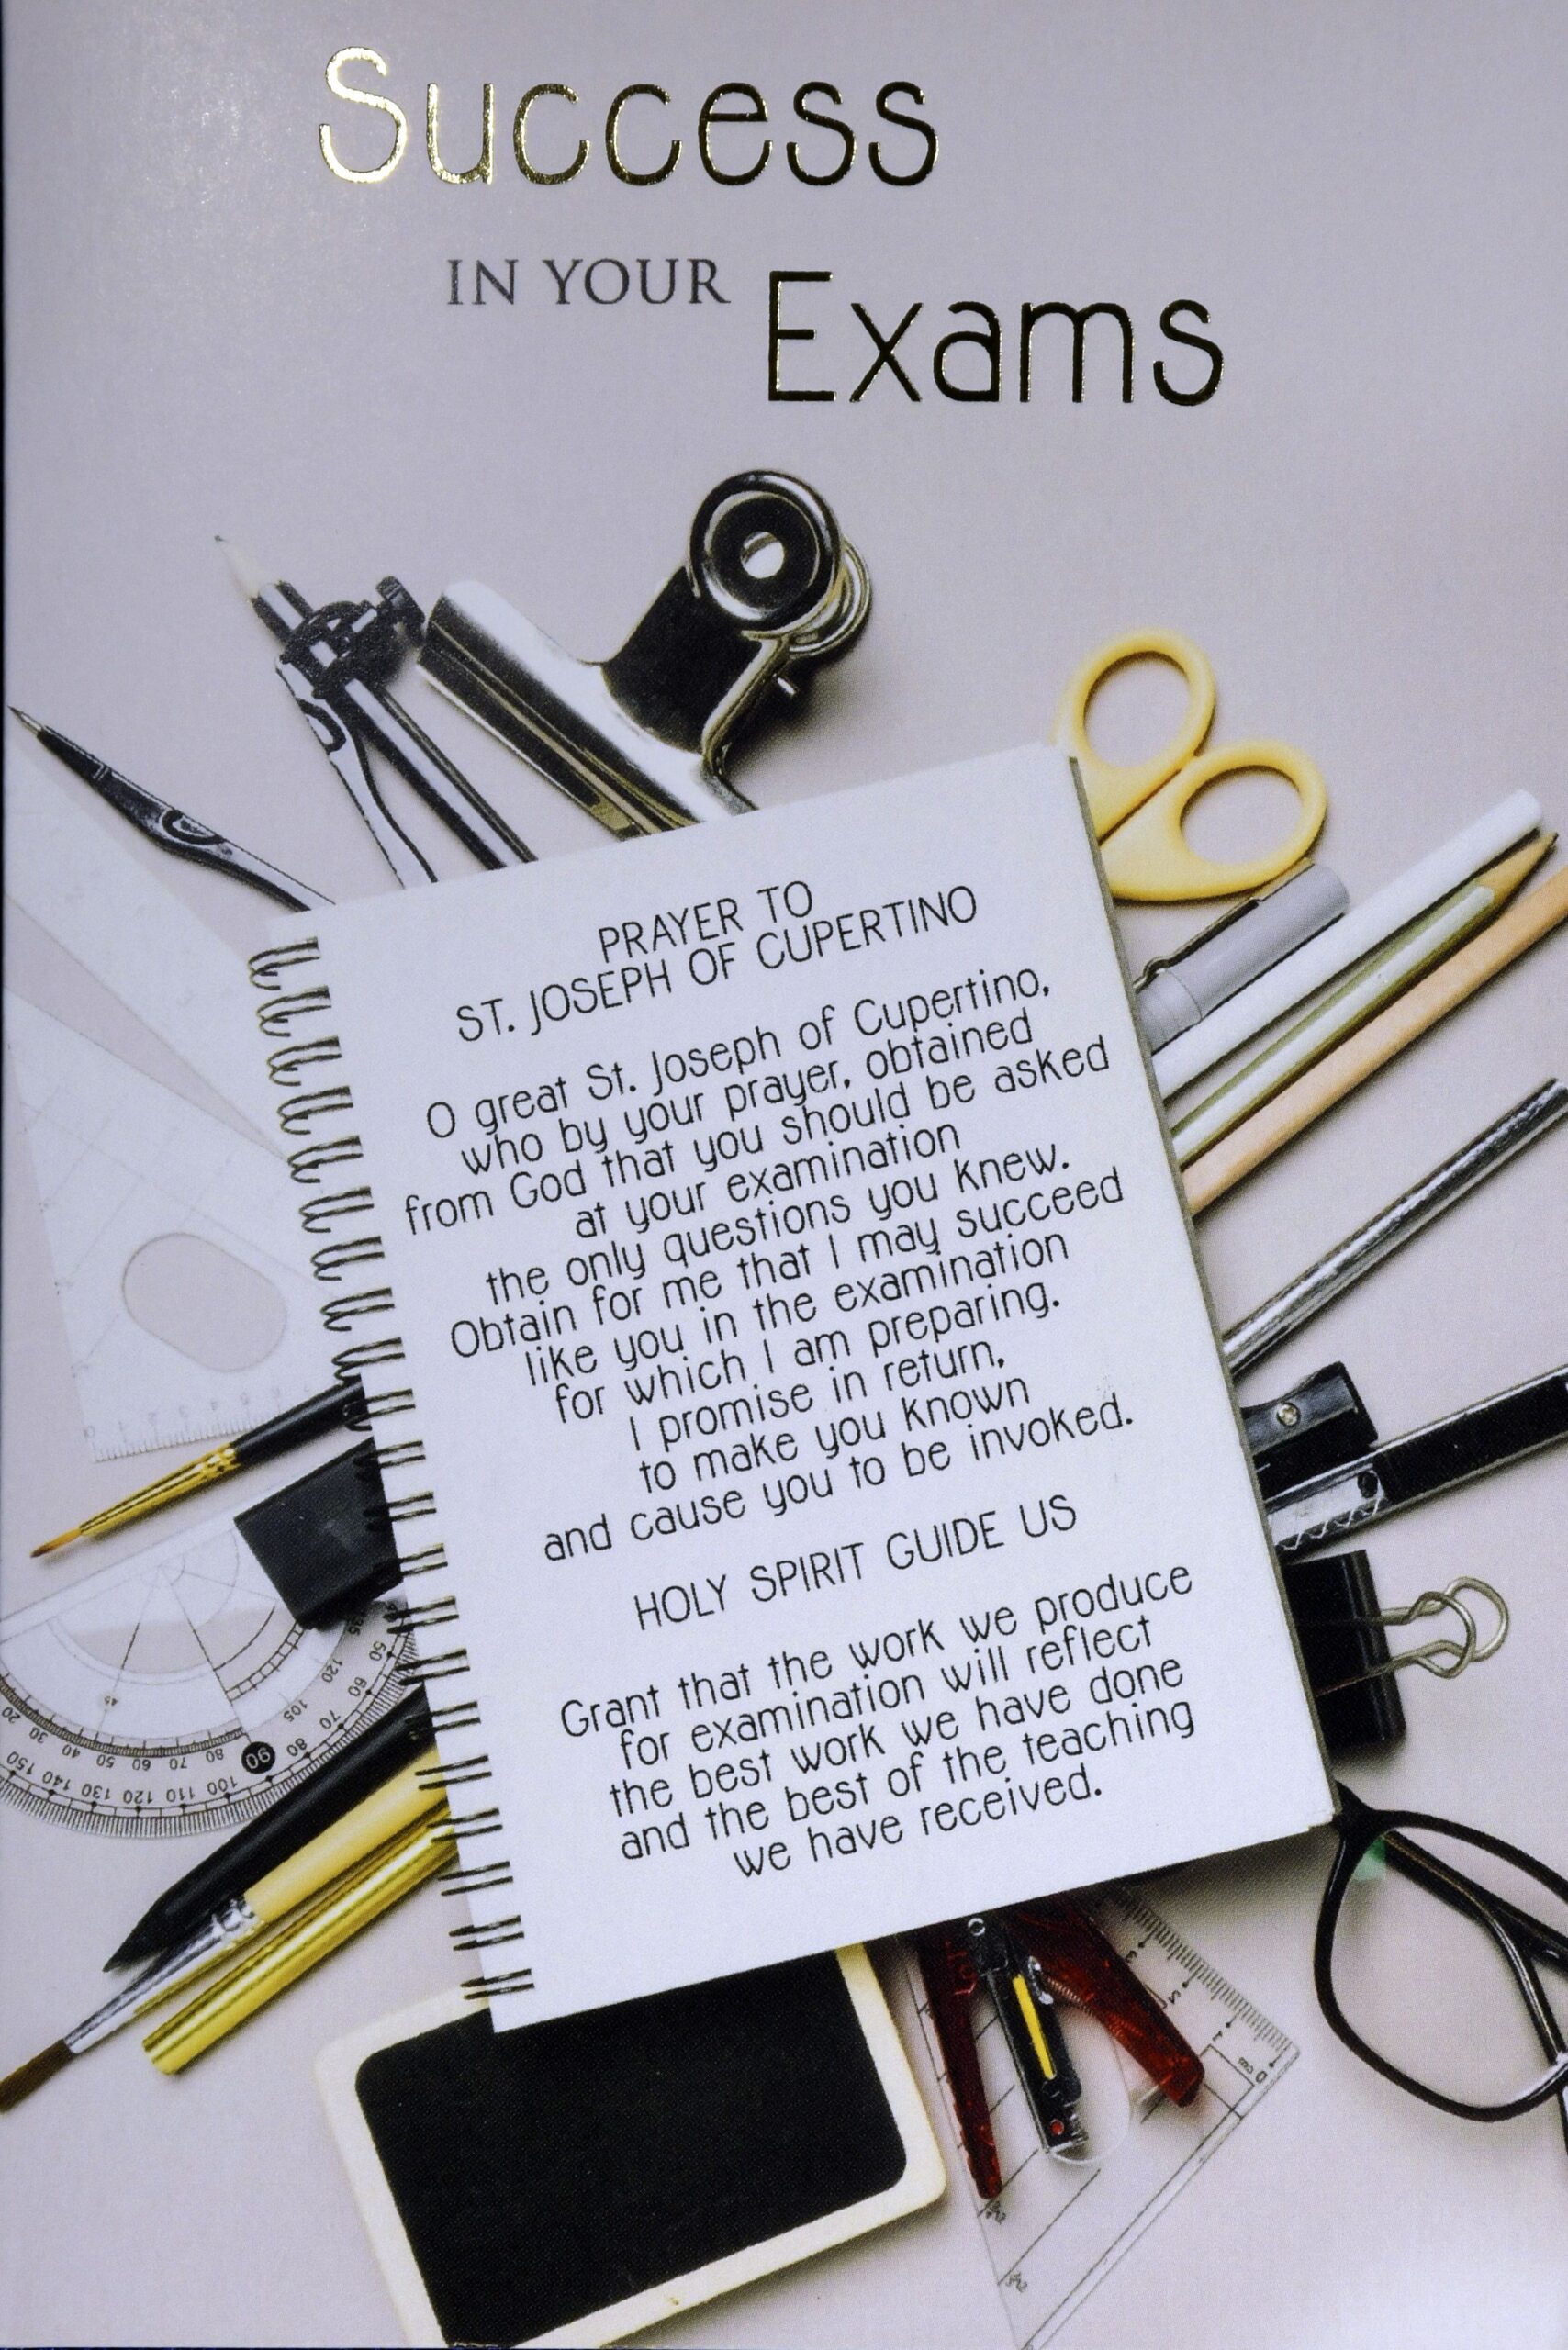 Success
IN YOUR Exams
PRAYER TO
ST. JOSEPH OF CUPERTINO
O great St. Joseph of Cupertino,
who by your prayer, obtained
from God that you should be asked
at your examination
the only questions you knew.
Obtain for me that I may succeed
like you in the examination
for which I am preparing.
I promise in return,
to make you known
and cause you to be invoked.
HOLY SPIRIT GUIDE US
Grant that the work we produce
for examination will reflect
the best work we have done
and the best of the teaching
we have received.
20 30 40 50 60 70 80 90
150 140 130 120 110 100 80 70 60 50
105 120 135
45